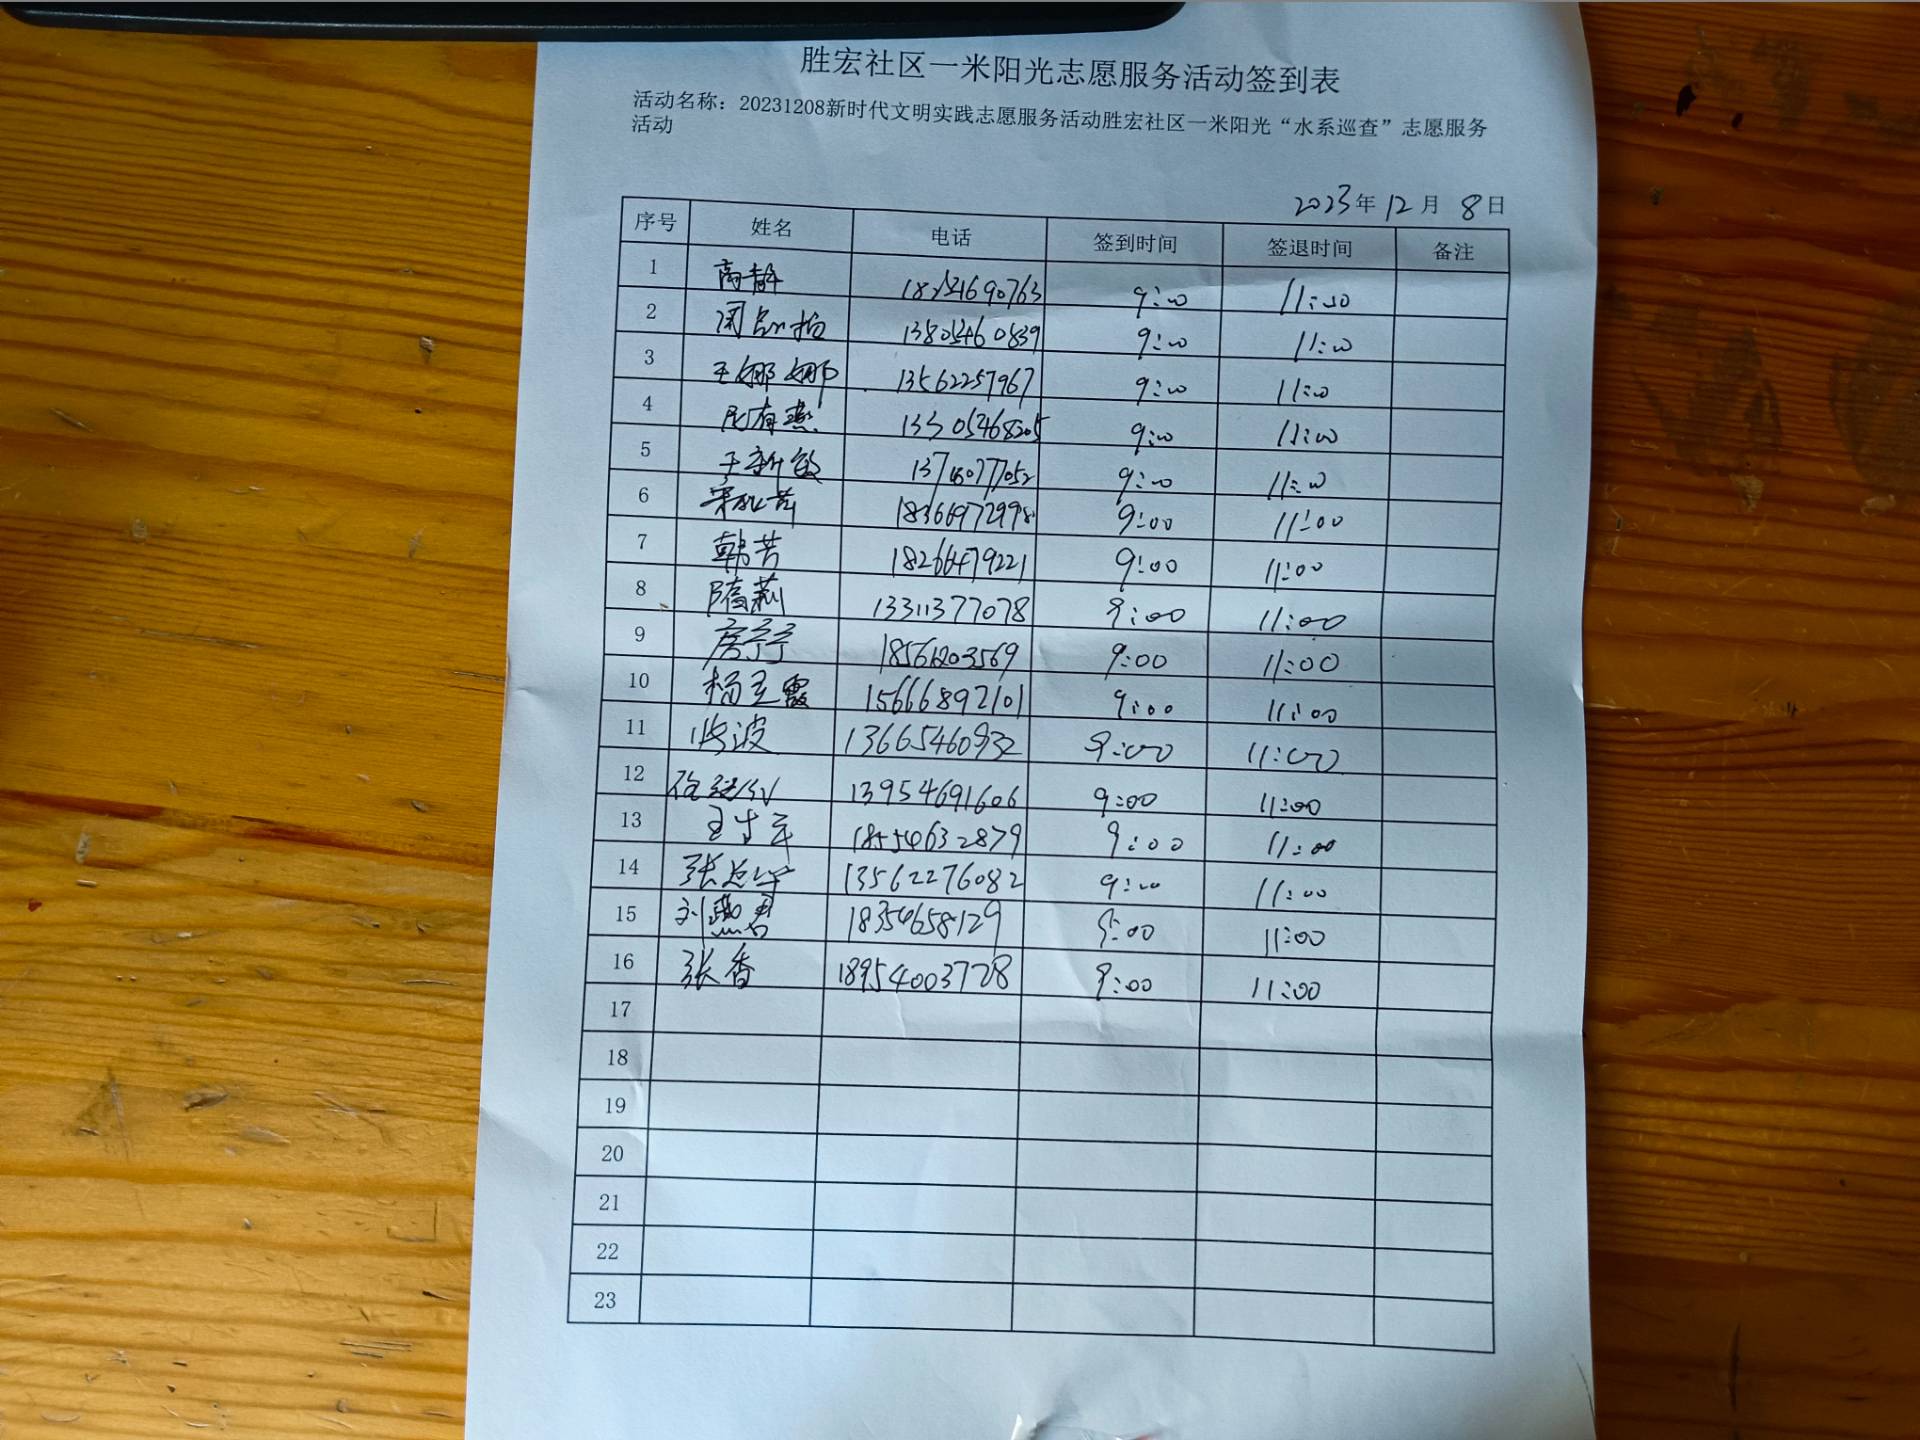 胜宏社区一米阳光志愿服务活动签到表
活动名称：20231208新时代文明实践志愿服务活动胜宏社区一米阳光“水系巡查”志愿服务
活动
2023年 12月 8日
序号 姓名 电话 签到时间 签退时间 备注
1 高静 9:00 11:00
2 9:00 11:00
3 王娜娜 13562257967 9:00 11:00
4 13305468205 9:00 11:00
5 9:00 11:00
6 18366972998 9:00 11:00
7 韩芳 18266479221 9:00 11:00
8 隋莉 13311377078 9:00 11:00
9 房宁宁 18561203569 9:00 11:00
10 15666892101 9:00 11:00
11 13665460932 9:00 11:00
12 13954691606 9:00 11:00
13 18554632879 9:00 11:00
14 13562276082 9:00 11:00
15 刘燕君 18354658129 9:00 11:00
16 张香 18954003728 9:00 11:00
17
18
19
20
21
22
23